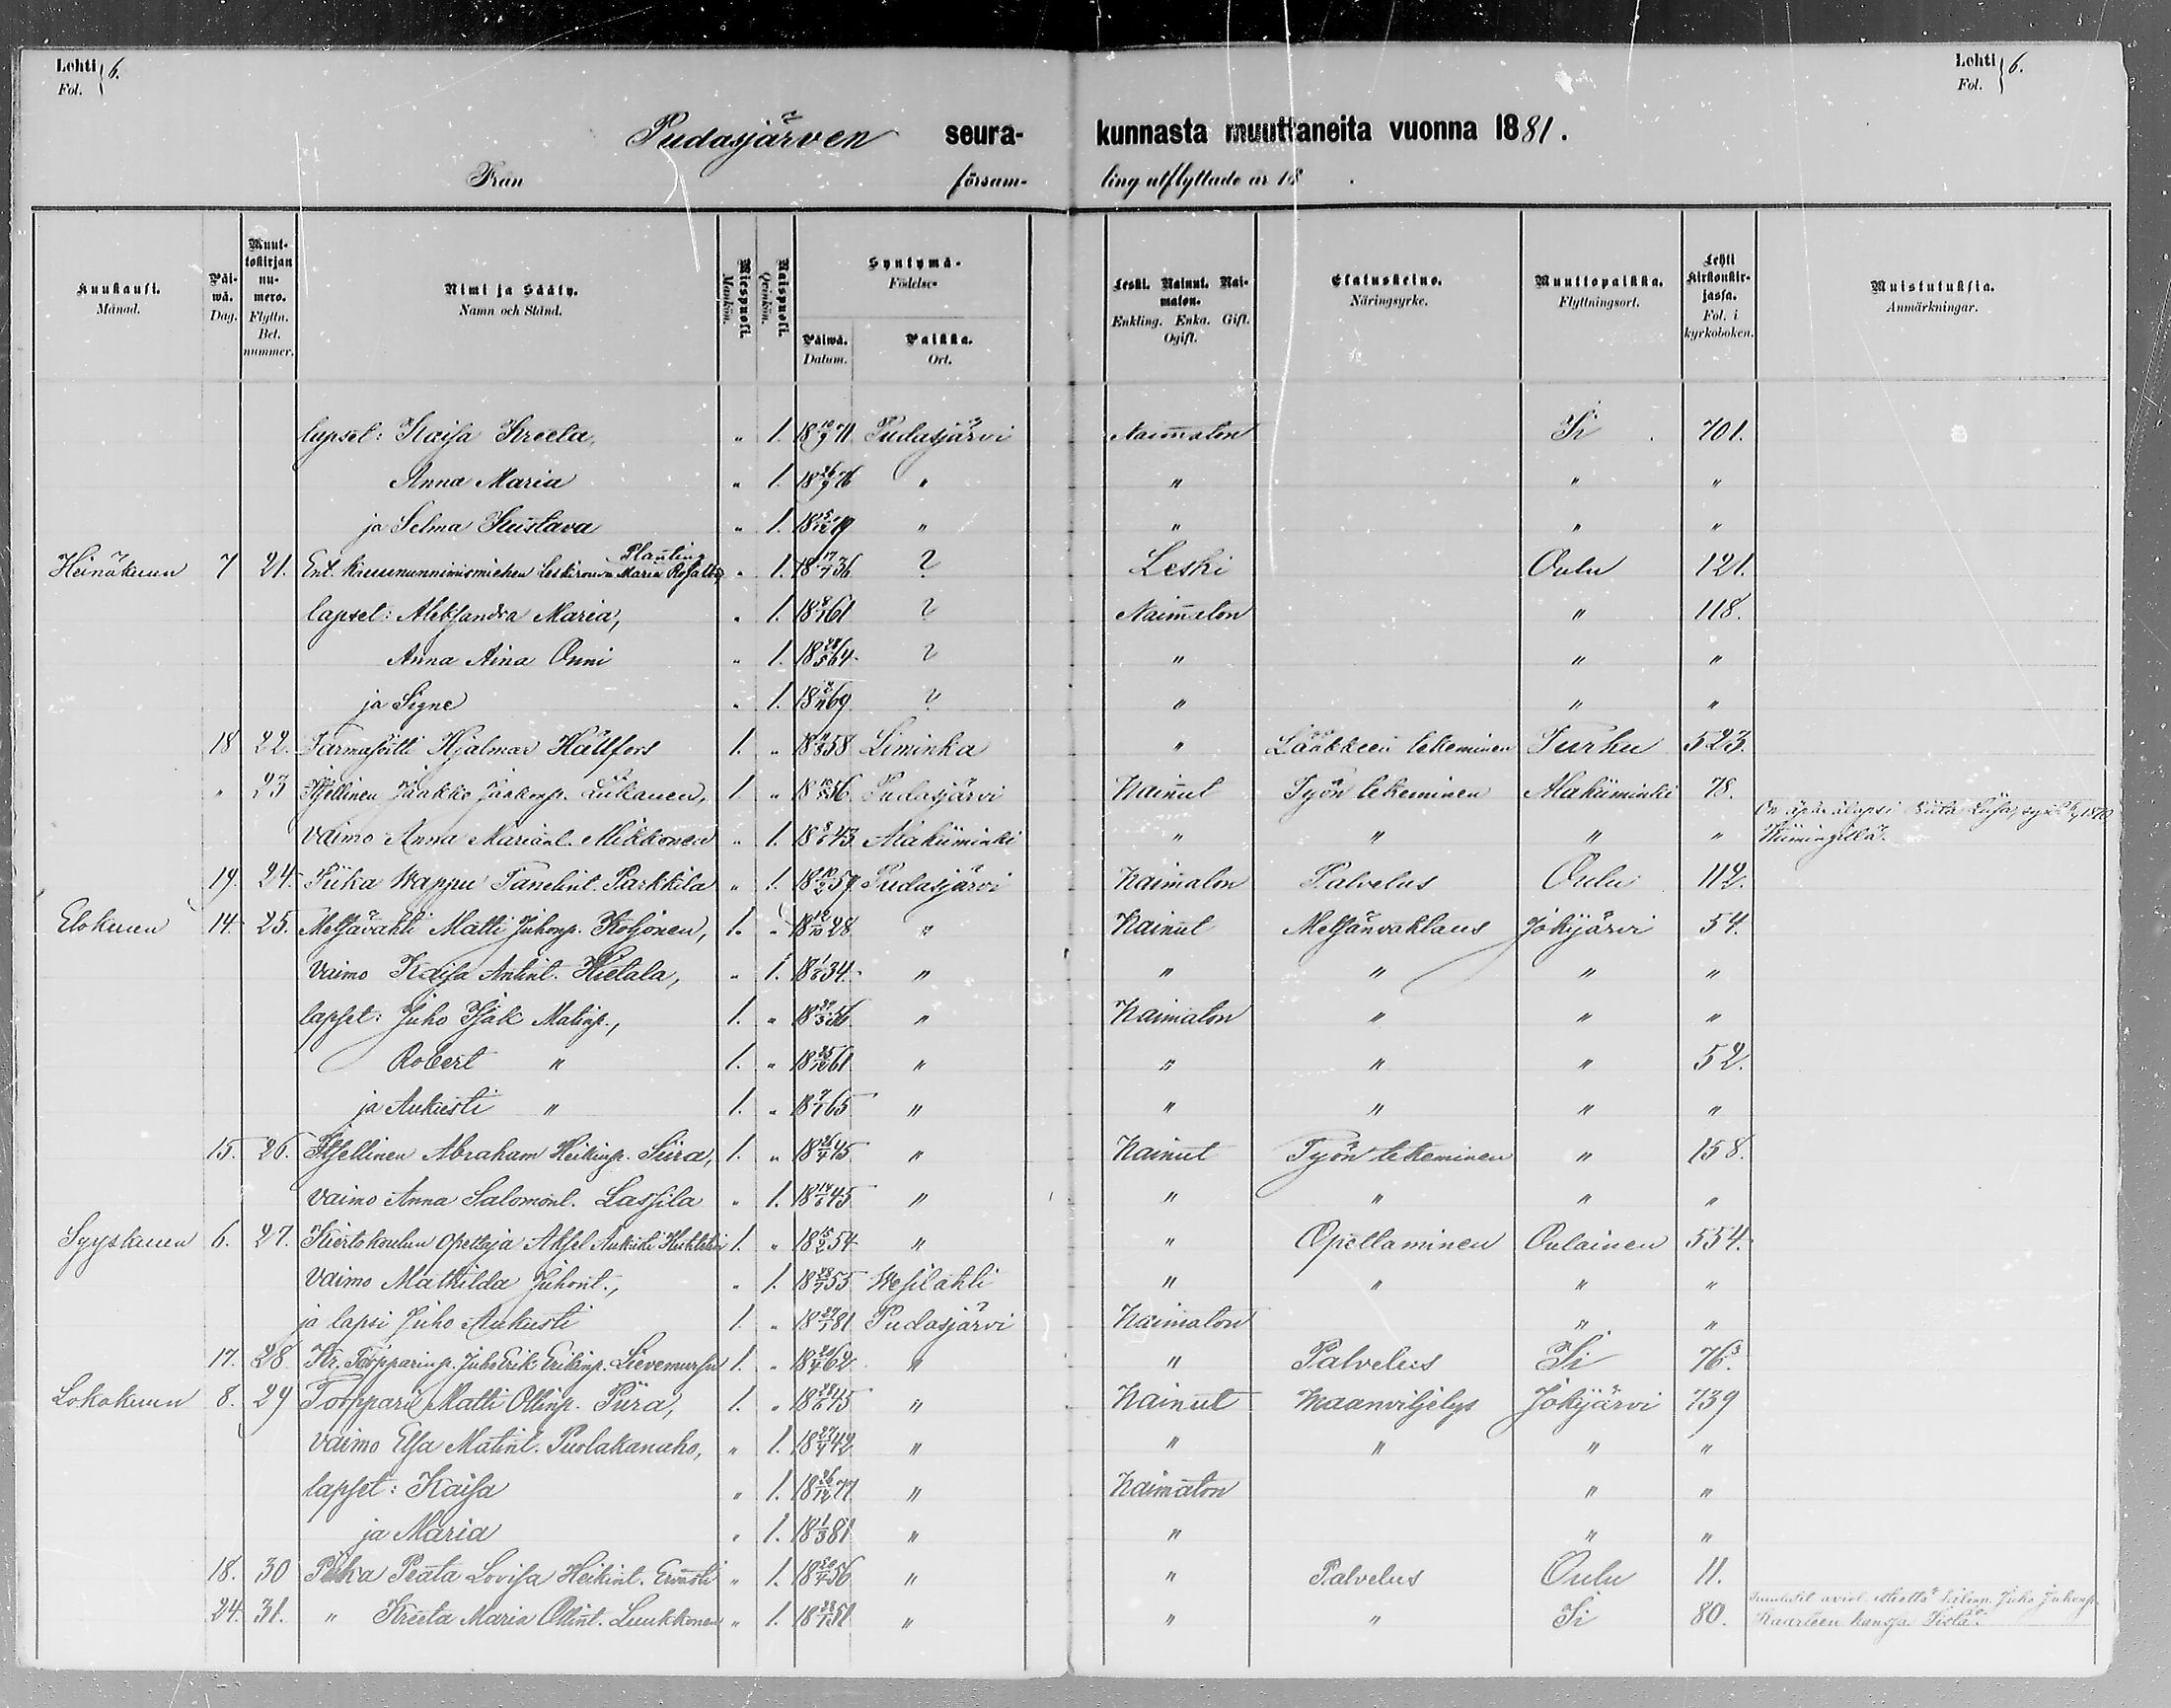 Lehti 6.
Fol.
Lehti 6.
Fol.
Pudasjärven seura- kunnasta muuttaneita vuonna 1881.
Från försam- ling utflyttade år 18 .
Kuukausi. Månad.
Päi- wä. Dag.
Muut- tokirjan nu- mero. Flyttn. Bet. nummer.
Nimi ja Sääty. Namn och Stånd.
Miespuoli. Mankön.
Naispuoli. Qvinkön.
Syntymä- Födelse-
Päiwä. Datum.
Paikka. Ort.
Leski. Nainut. Nai- maton. Enkling. Enka. Gift. Ogift.
Elatuskeino. Näringsyrke.
Muuttopaikka. Flyttningsort.
Lehti Kirkonkir- jassa. Fol. i kyrkoboken.
Muistutuksia. Anmärkningar.
lapset: Kaisa Kreeta, " 1. 18 10/9 71 Pudasjärvi Naimaton Ii 701.
Anna Maria " 1. 18 26/9 76 " " " "
ja Selma Kustava " 1. 18 15/12 79 " " " "
Heinäkuun 7 21. Ent. kruununnimismiehen leskirouva Maria Rosalia Planting " 1. 18 17/7 36 ? Leski Oulu 121.
lapset: Aleksandra Maria, " 1. 18 8/1 61 ? Naimaton " 118.
Anna Aina Onni " 1. 18 24/5 64 ? " " "
ja Signe " 1. 18 2/11 69 ? " " "
18 22. Farmasöitti Hjalmar Hällfors 1. " 1858 Liminka " Lääkkeen tekeminen Turku 523.
" 23 Itsellinen Jaakko Jaakonp. Liikanen, 1 " 1856 Pudasjärvi Nainut Työn tekeminen Alakiiminki 78.
vaimo Anna Marianl. Mikkonen " 1. 1843 Alakiiminki " " " " On äpärälapsi Kiimingillä.
19. 24. Piika Wappu Tanelint. Parkkila " 1. 18 10/2 59 Pudasjärvi Naimaton Palvelus Oulu 112.
Elokuun 14. 25. Metsävahti Matti Juhonp. Koljonen, 1. " 18 12/10 28 " Nainut Metsänvahtaus Jokijärvi 54.
vaimo Kaisa Antint. Hietala, " 1. 18 1/6 34. " " " " "
lapset: Juho Isak Matinp., 1. " 18 27/3 56 " Naimaton " " "
Robert " 1. " 18 25/12 61 " " " " 52.
ja Aukusti " 1. " 18 7/1 65 " " " " "
15. 26. Itsellinen Abraham Heikinp. Siira, 1. " 18 26/4 45 " Nainut Työn tekeminen " 158.
vaimo Anna Salomonl. Lassila " 1. 18 14/6 45 " " " " "
Syyskuun 6. 27. Kiertokoulun opettaja Aksel Aukusti 1. " 18 15/2 54 " " Opettaminen Oulainen 554.
vaimo Mathilda Juhont., " 1. 1855 Wesilahti " " " "
ja lapsi Juho Aukusti 1. " 18 27/1 81 Pudasjärvi Naimaton " "
17. 28. Kr. Torpparinp. Juho Erik Erikinp. Lievemursu 1. " 18 20/4 62 " " Palvelus Ii 76.
Lokakuun 8. 29 Torppari Matti Ollinp. Piira, 1. " 18 24/6 45 " Nainut Maanviljelys Jokijärvi 739
vaimo Elsa Matint. Puolakanaho, " 1. 18 27/4 42 " " " " "
lapset: Kaisa " 1. 18 26/12 77 " Naimaton " "
ja Maria " 1. 18 1/3 81 " " " "
18. 30 Piika Peata Lovisa Heikint. Ervasti " 1. 18 20/4 56 " " Palvelus Oulu 11.
24. 31. " Kreeta Maria Ollint. Luukkonen " 1. 18 28/1 51 " " " Ii 80. Juho Juhonp. Kaarteen kanssa Iistä.